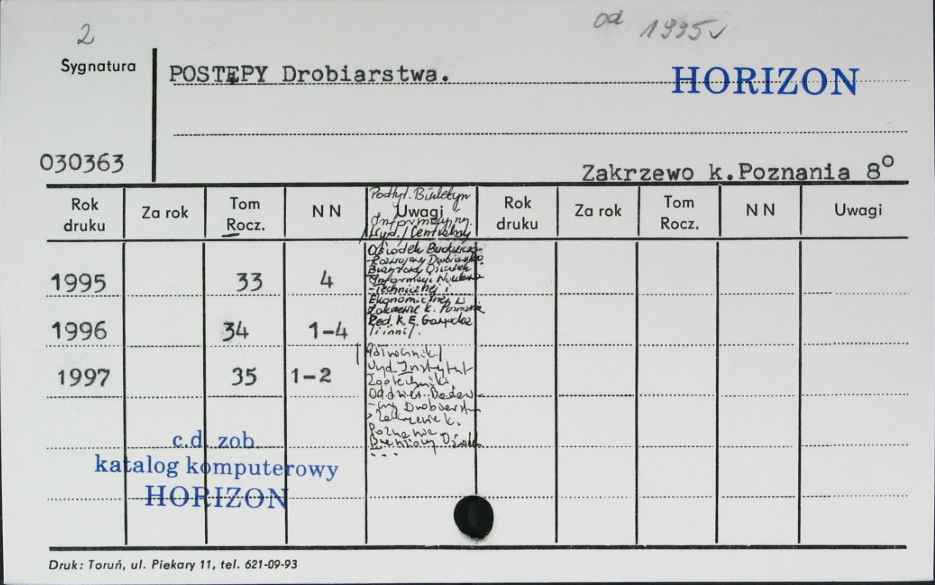 2
od 1995 ✓
Sygnatura
POSTĘPY Drobiarstwa.
HORIZON
030363
Zakrzewo k.Poznania 8°
Rok druku Za rok Tom Rocz. N N Uwagi Rok druku Za rok Tom Rocz. N N Uwagi
Podtyt. Biuletyn
Informacyjny.
Wyd. Centralny
Ośrodek Badawczo-
Rozwojowy Drobiarstwa
Branżowy Ośrodek
Informacji Naukowo
-Technicznej i
Ekonomicznej w
Zakrzewie k. Poznania
Red. K. E. Gawęcka
/i inni/.
1995 33 4
1996 34 1-4
1997 35 1-2
/Półrocznik/
Wyd. Instytut
Zootechniki.
Oddział Badaw-
-czy Drobiarstwa
Zakrzewie k.
Poznania
Branżowy Ośrodek
...
c.d. zob
katalog komputerowy
HORIZON
Druk: Toruń, ul. Piekary 11, tel. 621-09-93